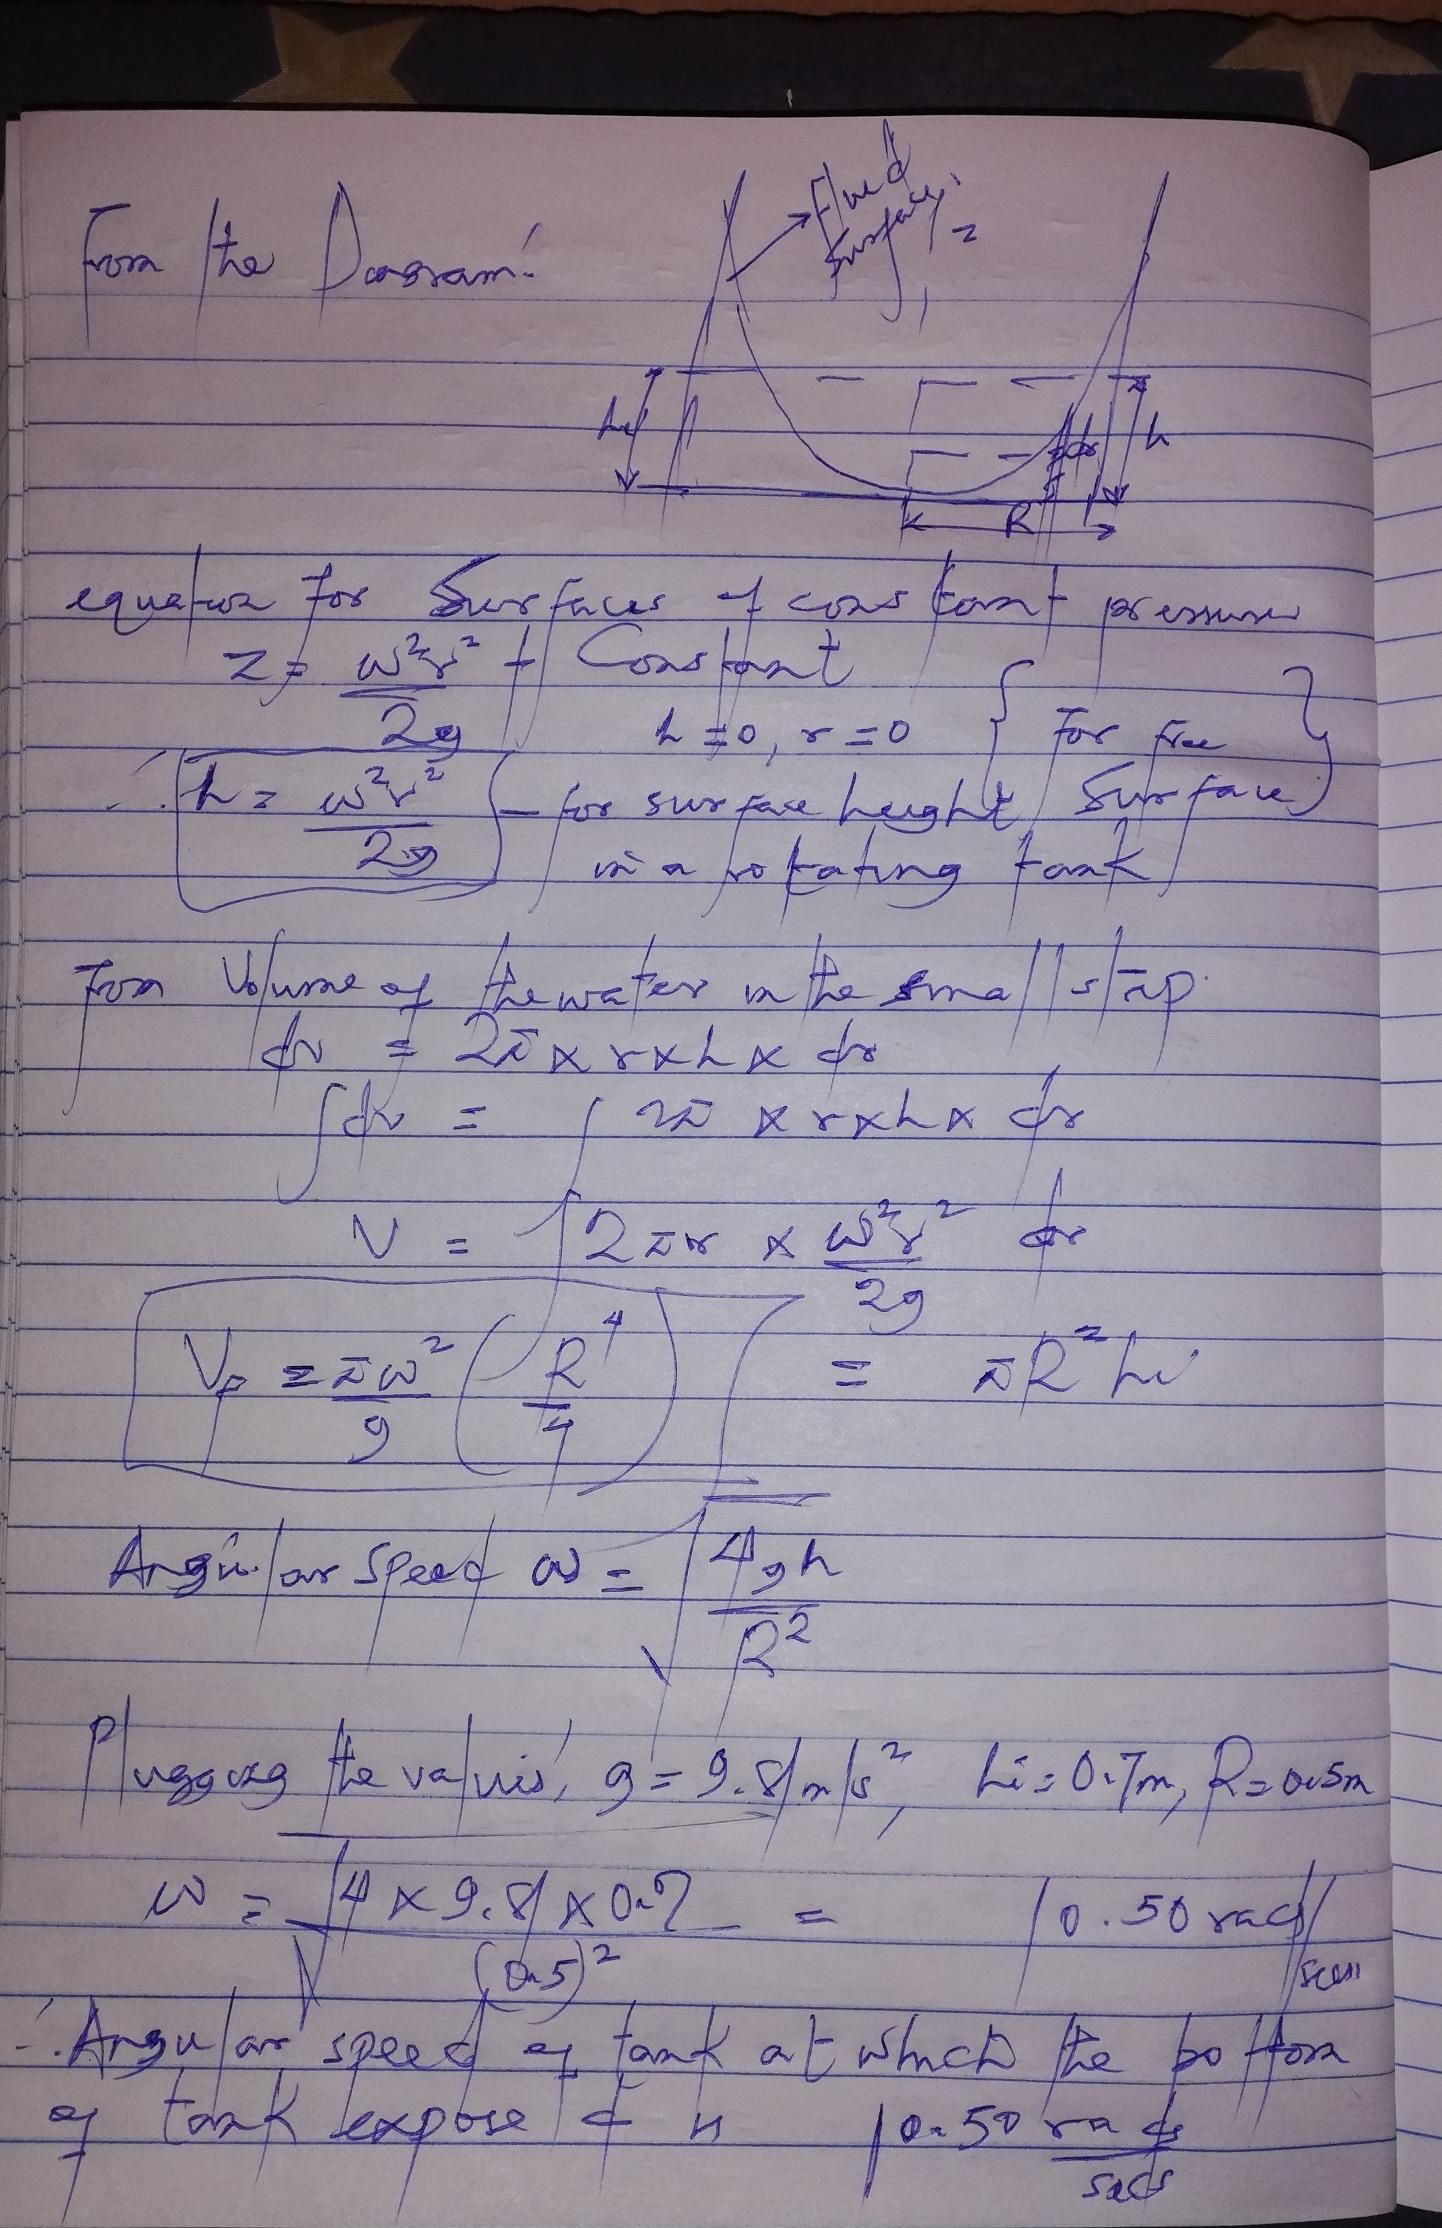 From the Diagram:
Fluid
surface
z
hi
dr
h
R
equation for Surfaces of constant pressure
z = ω²r² / 2g + Constant
h = 0, r = 0 { For free Surface }
∴ h = ω²r² / 2g - for surface height
in a rotating tank
From Volume of the water in the small strip.
dv = 2π × r × h × dr
∫dv = ∫ 2π × r × h × dr
V = ∫ 2πr × ω²r² / 2g dr
VF = πω² / g (R⁴ / 4) = πR² hi
Angular speed ω = √(4gh / R²)
Plugging the values, g = 9.81m/s², hi = 0.7m, R = 0.5m
ω = √(4 × 9.81 × 0.7 / (0.5)²) = 10.50 rad/
∴ Angular speed of tank at which the bottom
of tank exposed is 10.50 rads / secs